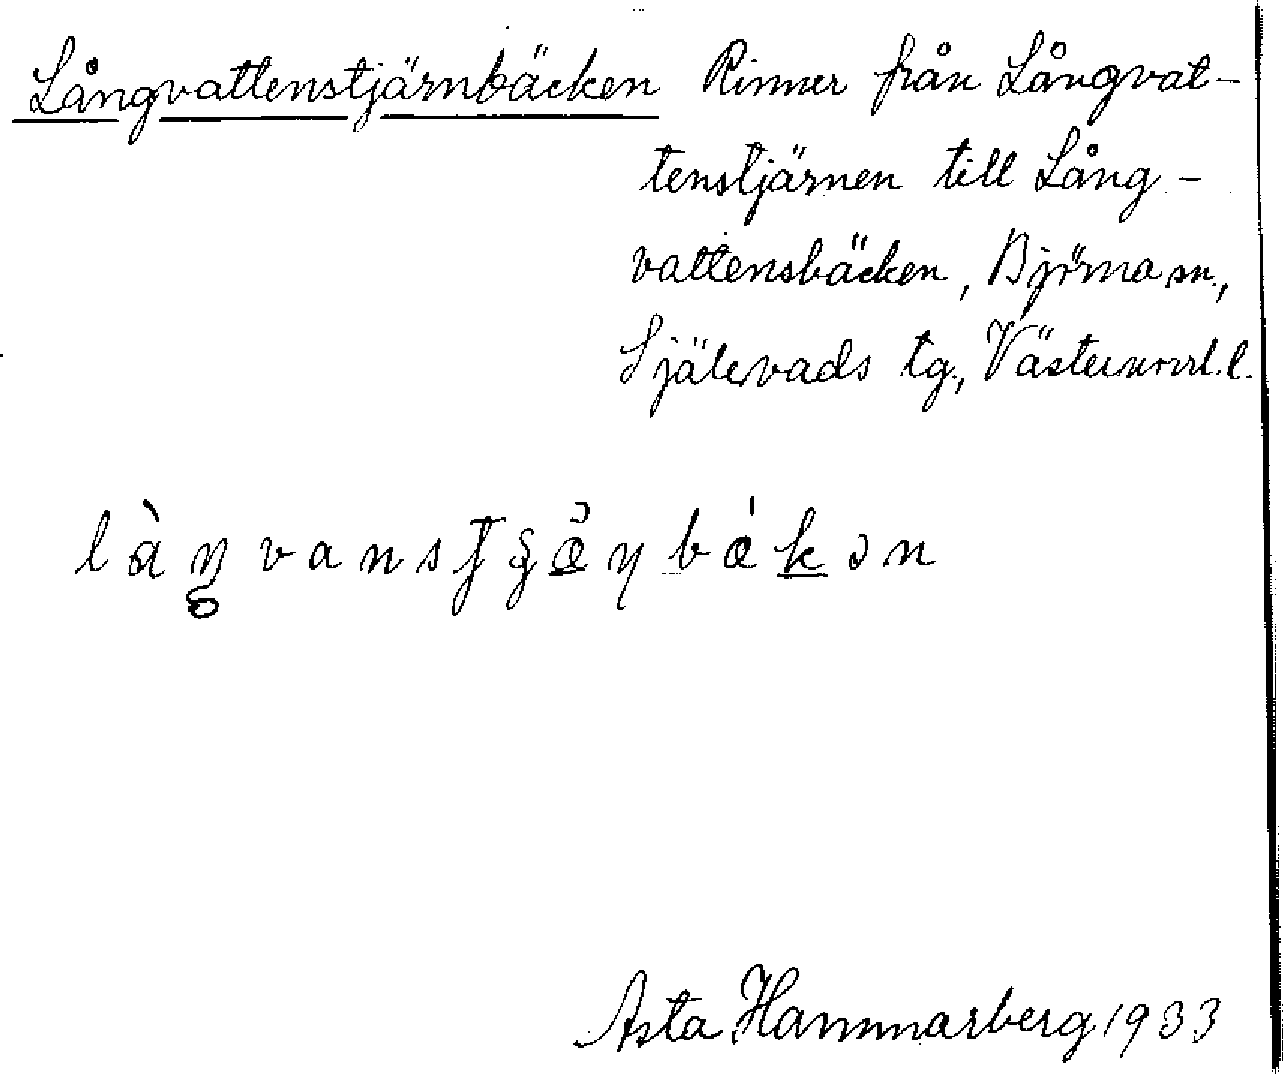 Långvattenstjärnbäcken Rinner från Långvat-
tenstjärnen till Lång-
vattensbäcken, Björna sn.,
Själevads tg., Västernorrl. l.
Asta Hammarberg 1933